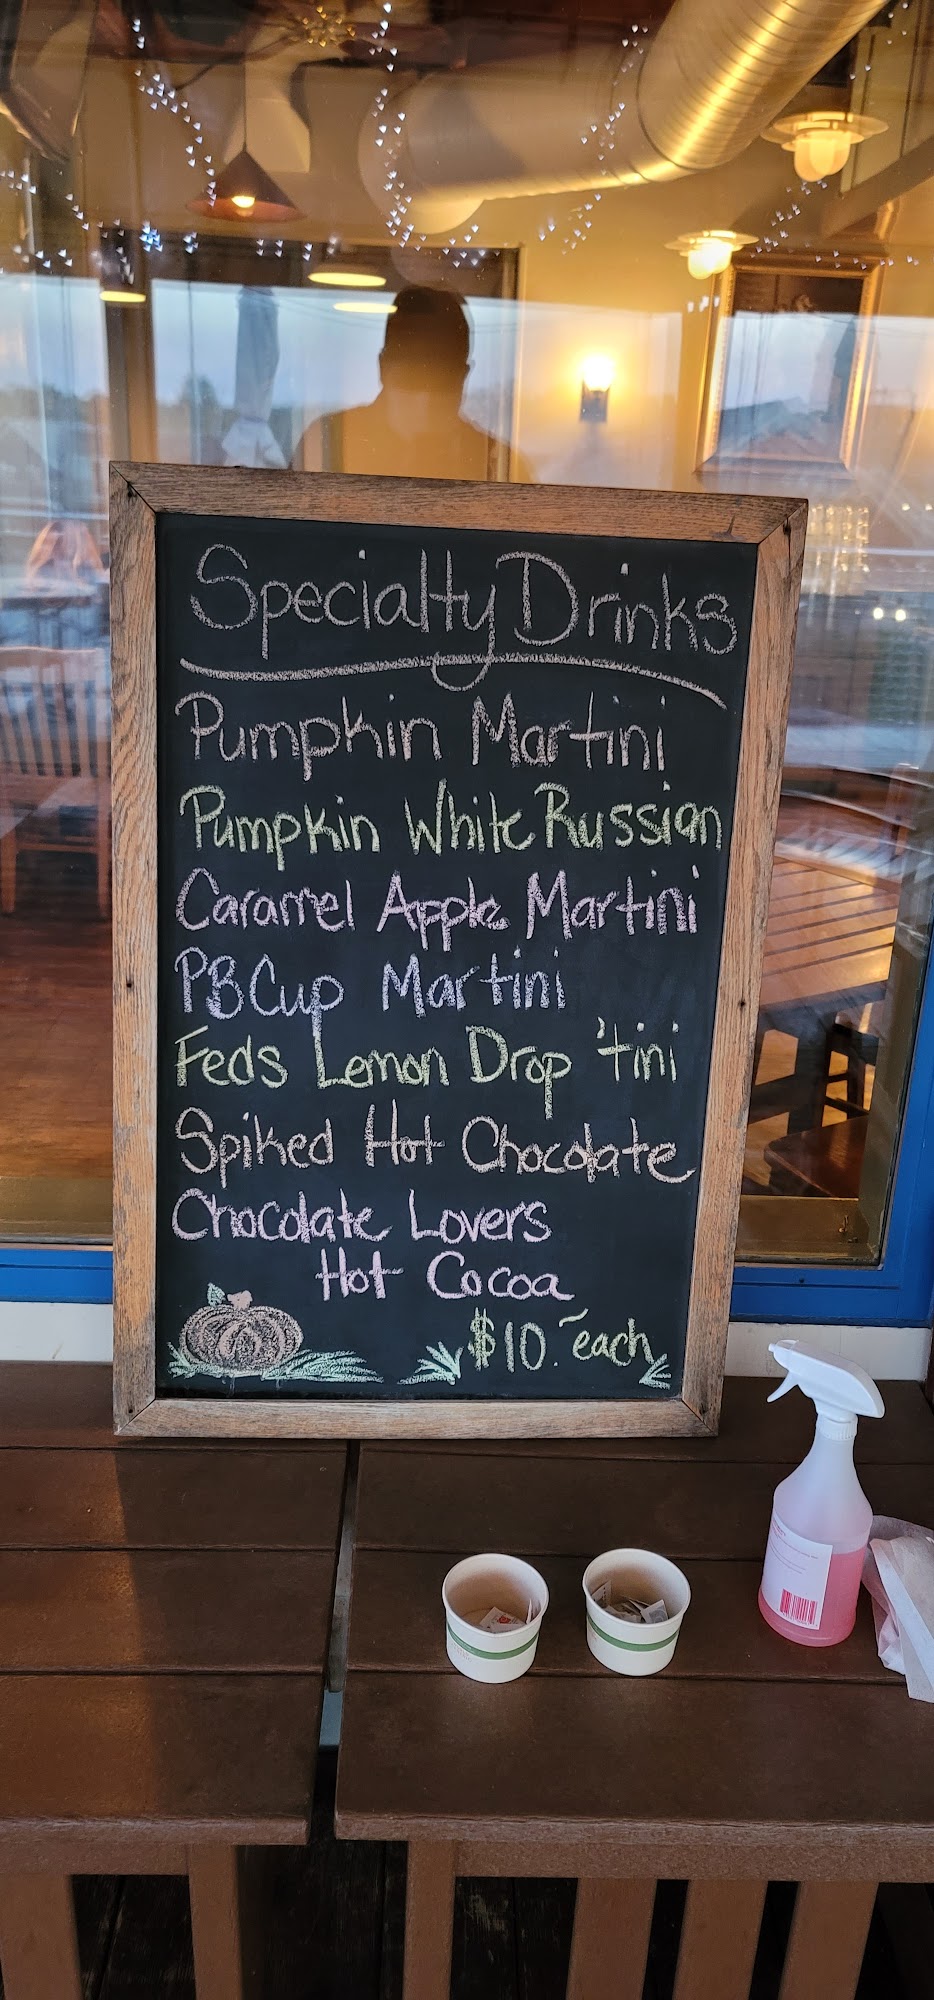 Specialty Drinks
Pumpkin Martini
Pumpkin White Russian
Caramel Apple Martini
PB Cup Martini
Feds Lemon Drop 'tini
Spiked Hot Chocolate
Chocolate Lovers
Hot Cocoa
$10.- each